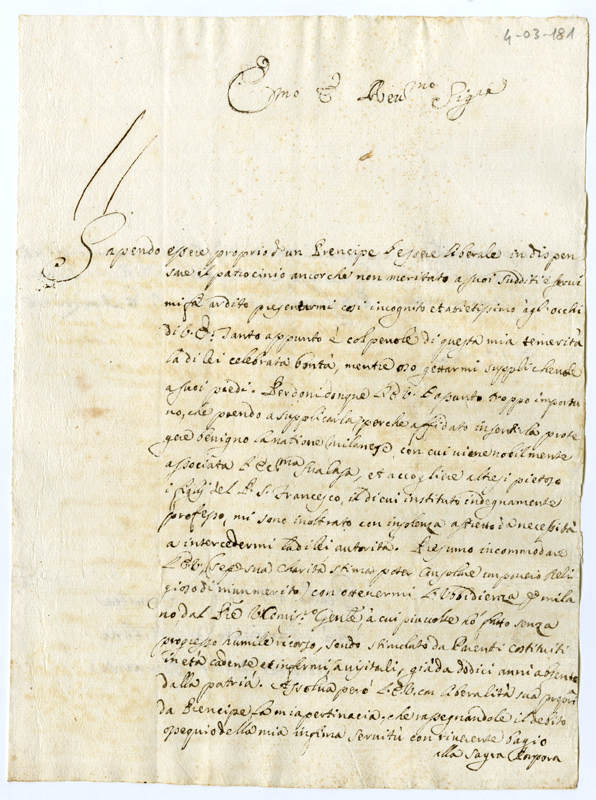 4-03-181
Emo & Reumo Sigre
Sapendo essere proprio d'un Prencipe l'essere liberale in dispen
sare il patrocinio ancorche non meritato a suoi sudditi e serui
mi fà ardito presentarmi così incognito et agli occhi
di V. E. Tanto appunto è colpeuole di questa mia temerità
la di lei celebrata bontà, mentre oso gettarmi supplicheuole
a suoi piedi. Perdoni donque l'E.V. l'assunto troppo importu
no, che prendo a supplicarla, perche affidato in sentirla prote
gere benigno la natione Milanese, con cui viene nobilmente
associata l' sua Casa, et accogliere altresi pietoso
i figlij del P. S. Francesco, il di cui instituto indegnamente
professo, mi sono inoltrato con insolenza astretto da necessità
a intercedermi la di lei autorità. Presumo incommodare
l'E.V. (se sua charità stima poter consolare un pouero Reli
gioso di niun merito) con ottenermi l'Vbbidienza p Mila
no dal Pre Comisro Genle, à cui piu uolte hò fatto senza
progresso humile ricorso, sendo stimolato da Parenti costituiti
in età cadente et infermi a uisitarli, già da dodici anni absente
dalla patria. Assolua però l'E.V. con liberalità sua propria
da Prencipe la mia pertinacia, che rassegnandole il debito
ossequio della mia infima seruitù con riuerente bagio
alla Sagra Porpora